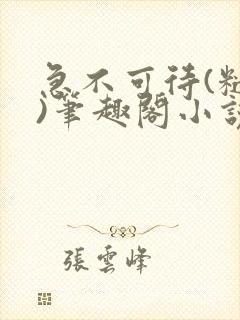 急不可待(
)筆趣閣小
張雲峰